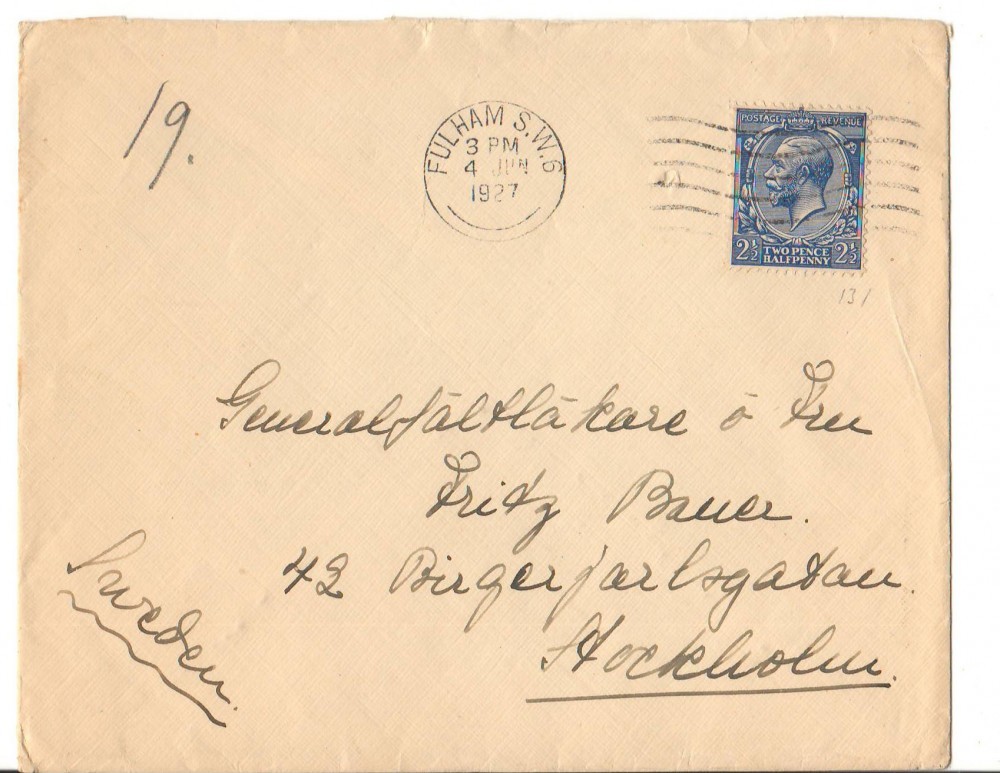 19.
FULHAM S.W.6
3 PM
4 JUN
1927
POSTAGE REVENUE
2½ TWO PENCE HALFPENNY 2½
131
Generalfältläkare o Fru
Fritz Bauer.
42 Birgerjarlsgatan.
Stockholm.
Sweden.